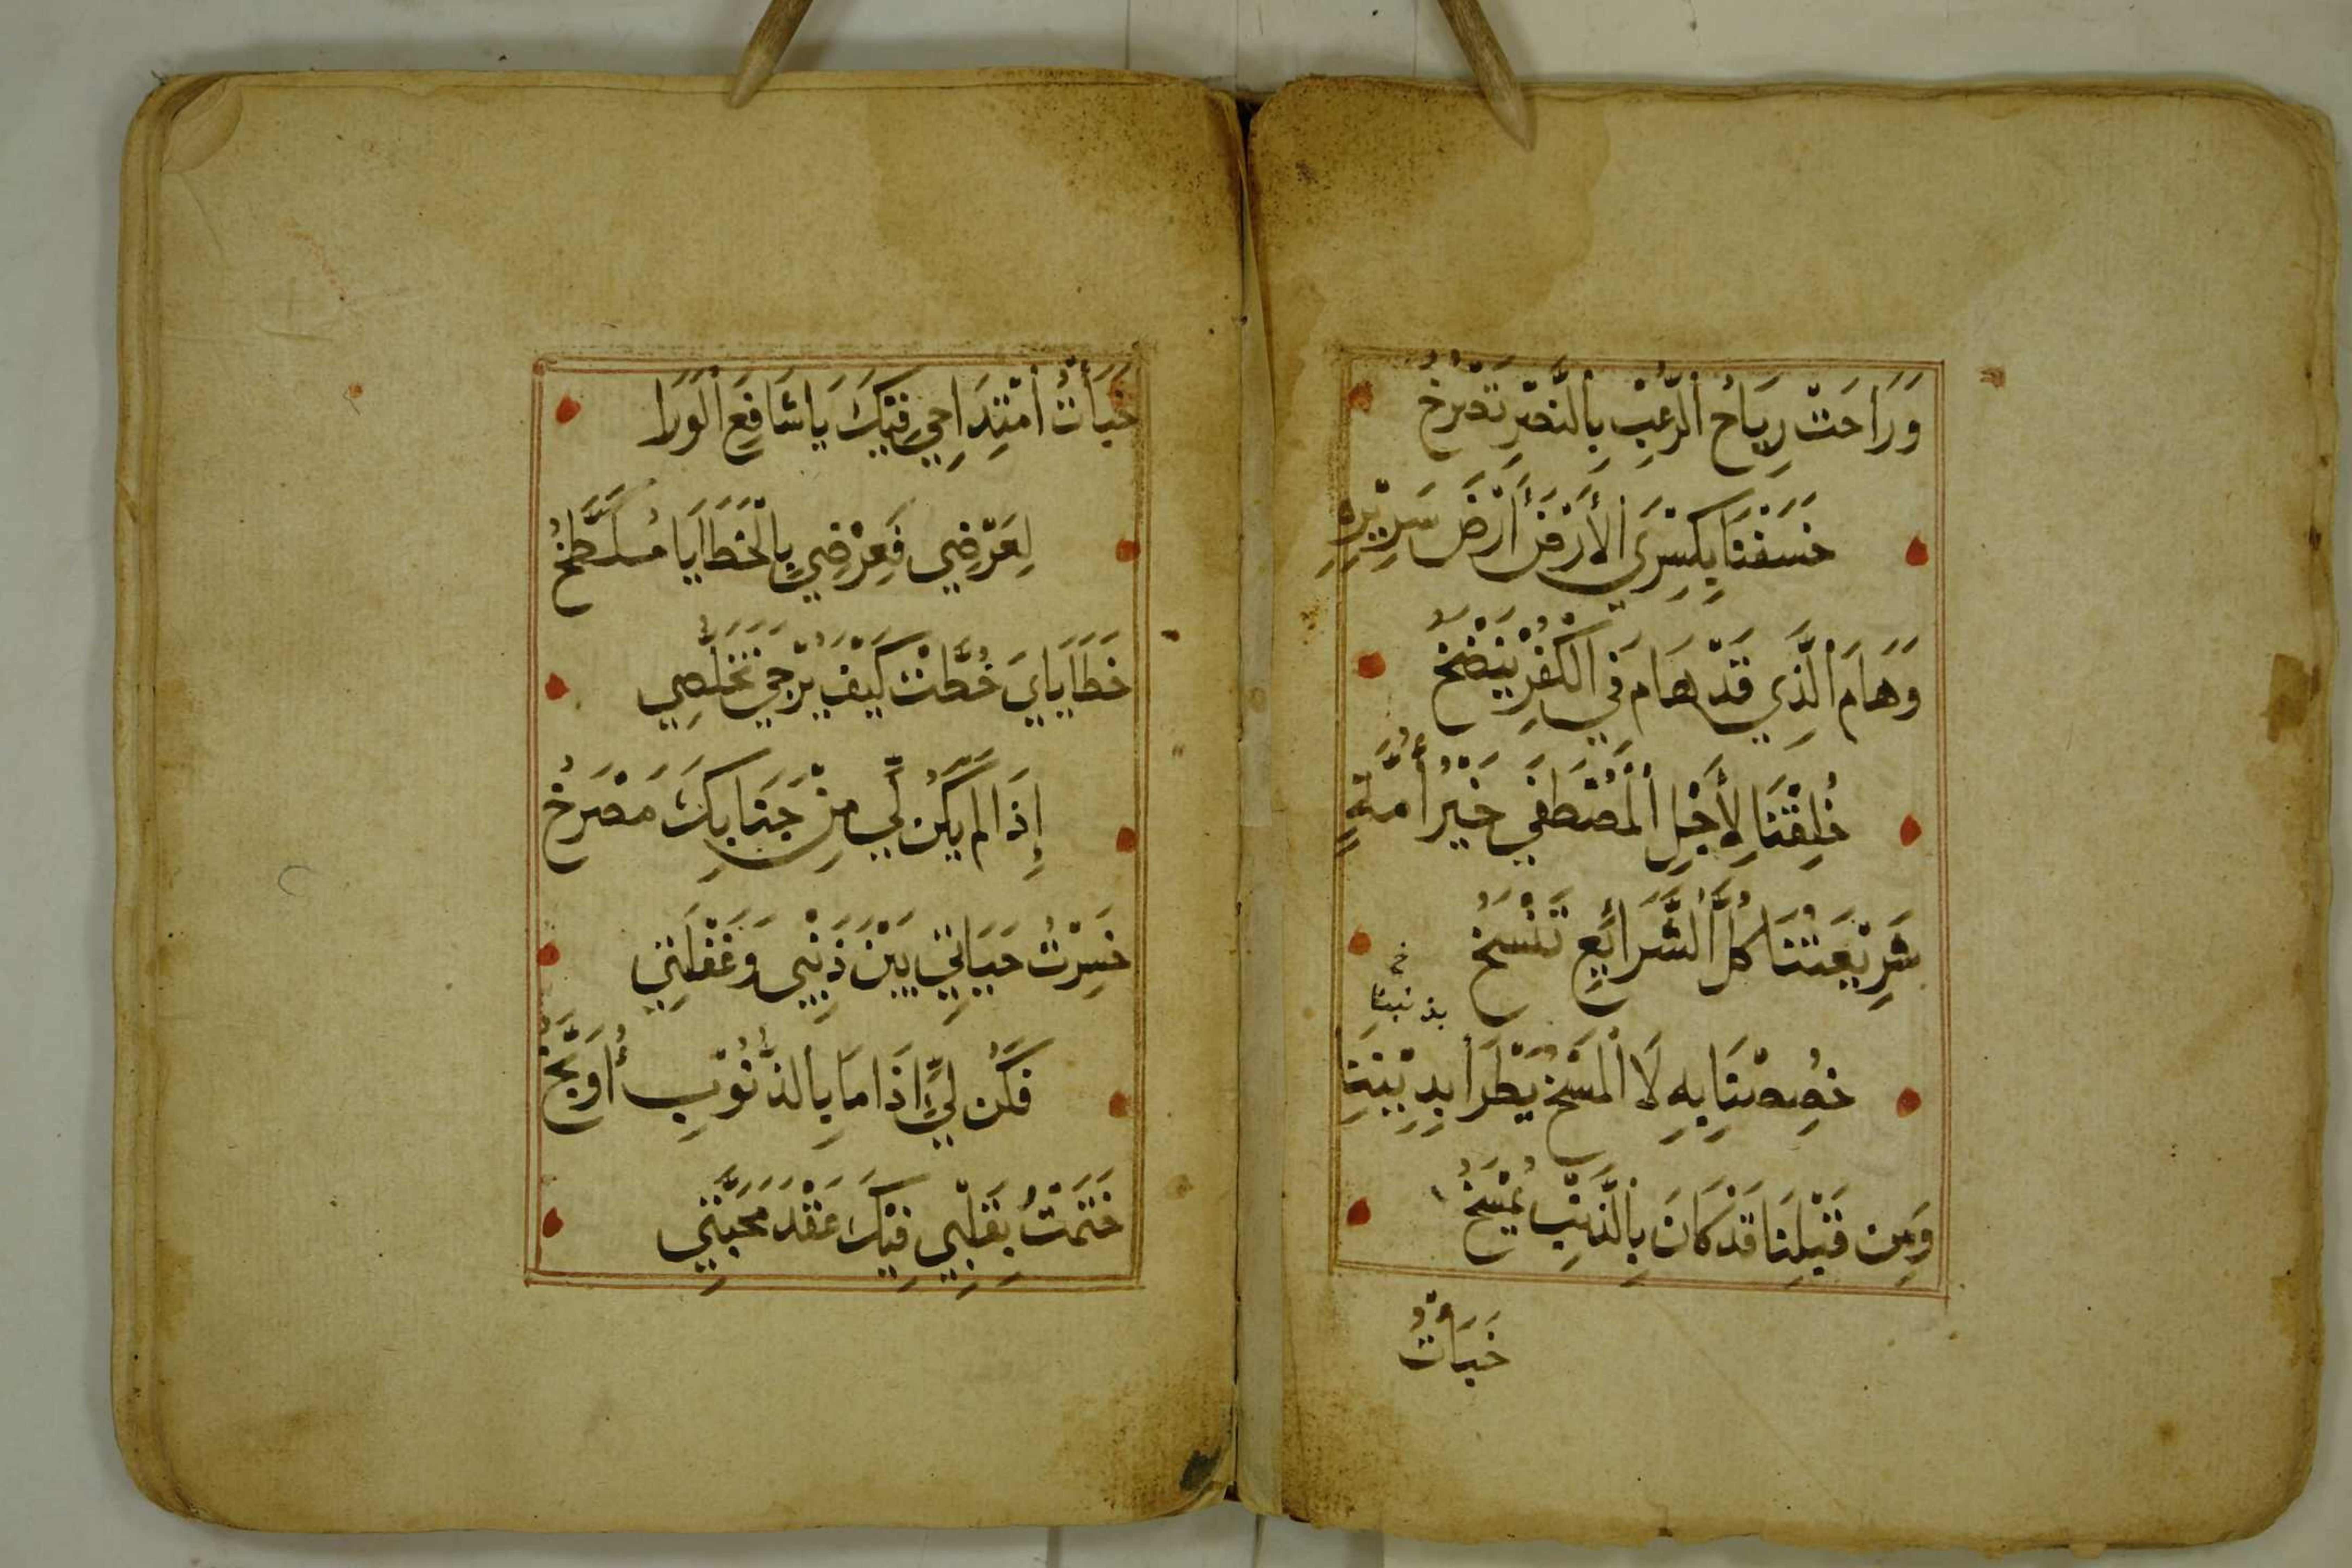 وَرَاحَتْ رِيَاحُ الرُّعْبِ بِالنَّصْرِ تَصْرُخُ
خَسَفْنَا بِكِسْرَى الأَرْضَ أَرْضَ سَرِيْرِهِ
وَهَامَ الَّذِي قَدْ هَامَ فِي الْكُفْرِ يُنْضَخُ
خُلِقْنَا لِأَجْلِ الْمُصْطَفَى خَيْرُ أُمَّةٍ
شَرِيْعَتُنَا كُلَّ الشَّرَائِعِ تَنْسَخُ
خ
بذنبنا
خُصِصْنَا بِهِ لَا الْمَسْخُ يَطْرَا بِدِيْنِنَا
وَمِن قَبْلِنَا قَدْ كَانَ بِالذَّنْبِ يُمْسَخُ
خَبَأْتُ
خَبَأْتُ امْتِدَاحِي فِيْكَ يَا شَافِعَ الْوَرَا
لِعَرْضِي فَعِرْضِي بِالْخَطَايَا مُلَطَّخُ
خَطَايَايَ خُطَّتْ كَيْفَ يُرْجَى تَخَلُّصِي
إِذَا لَمْ يَكُن لِّي مِنْ جَنَابِكَ مَصْرَخُ
خَسِرْتُ حَيَاتِي بَيْنَ ذَنْبِي وَغَفْلَتِي
فَكُن لِّي إِذَا مَا بِالذُّنُوْبِ أُوَبَّخُ
خَتَمْتُ بِقَلْبِي فِيْكَ عَقْدَ مَحَبَّتِي